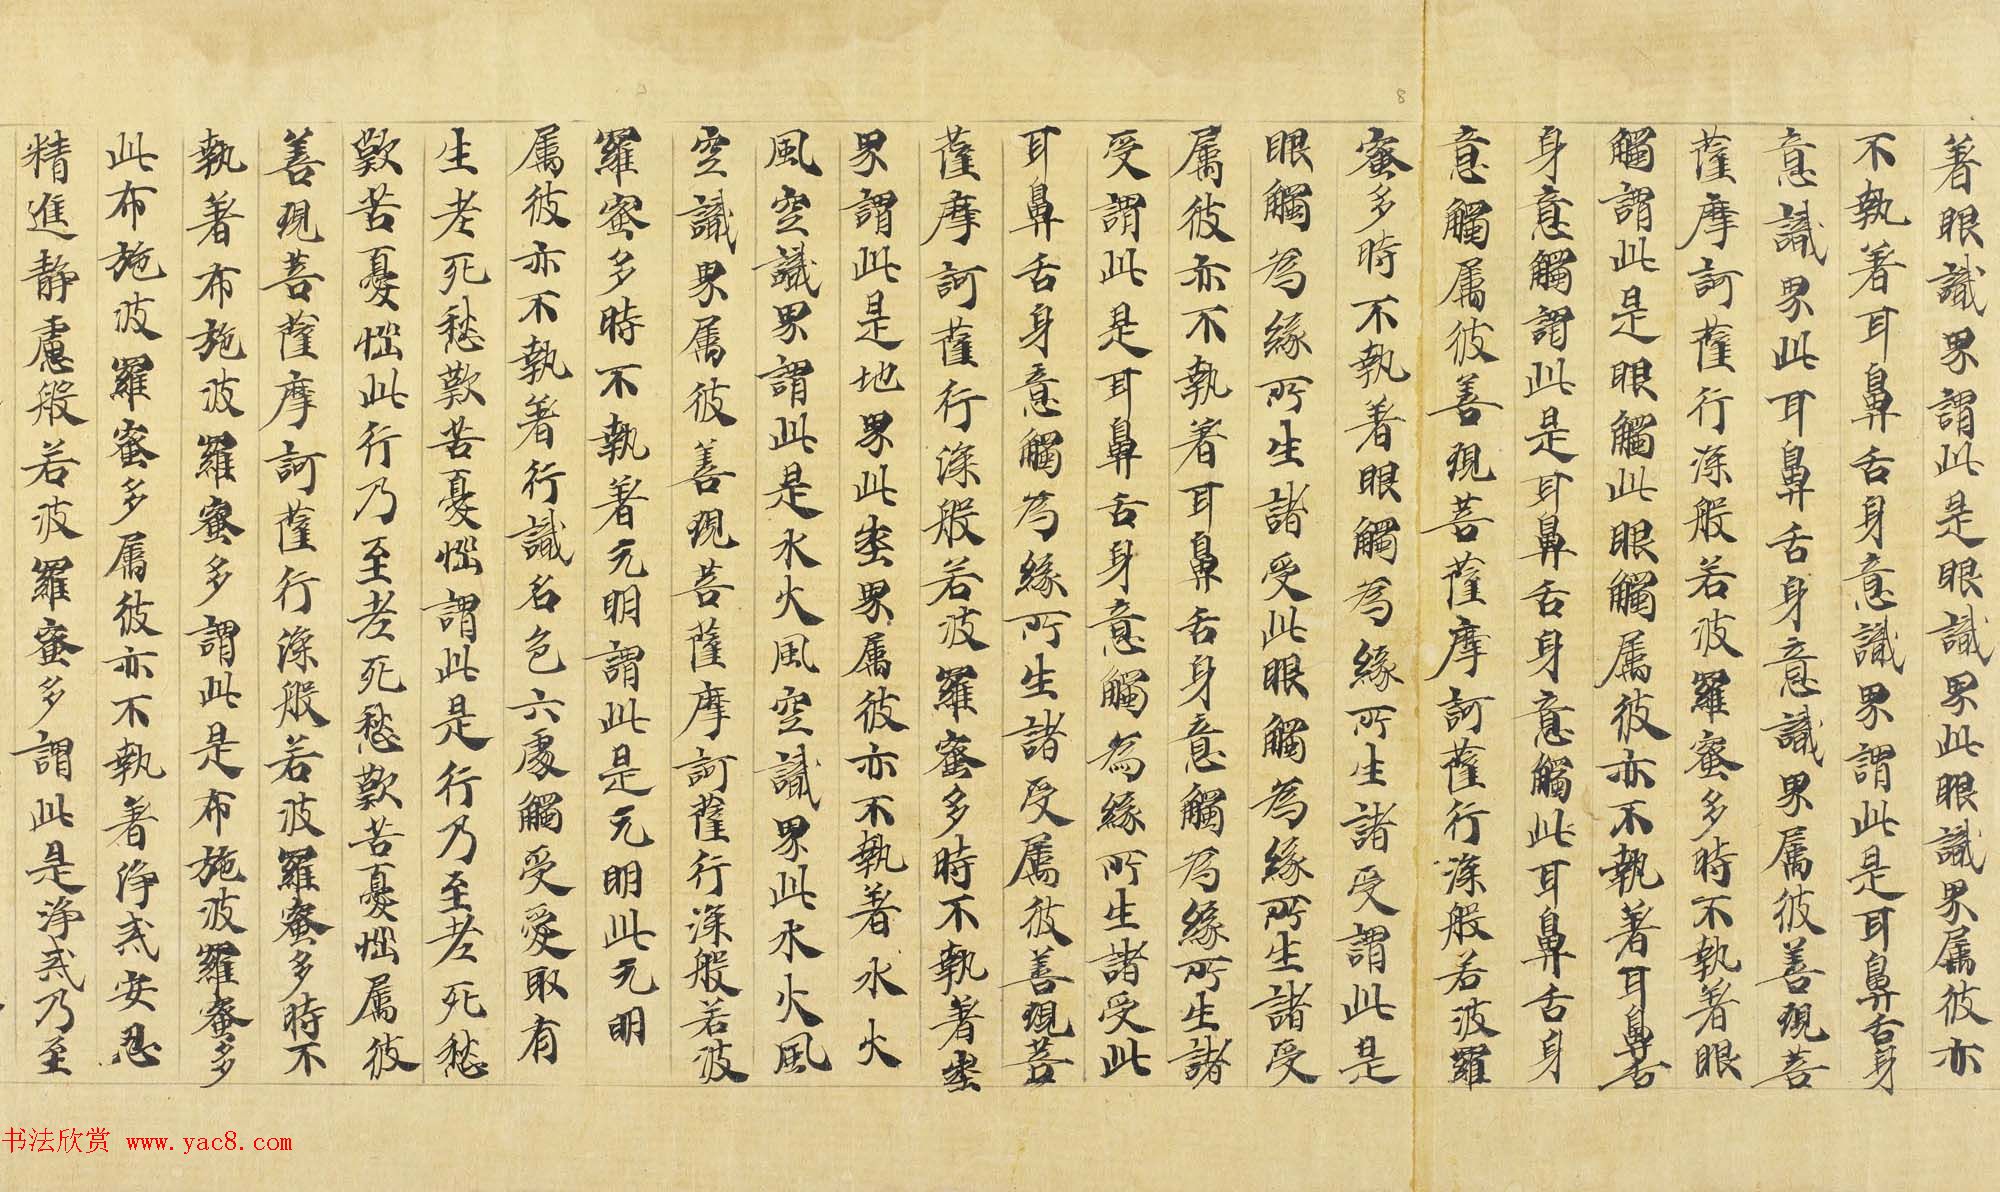 著眼識界謂此是眼識界此眼識界属彼亦
不執著耳鼻舌身意識界謂此是耳鼻舌身
意識界此耳鼻舌身意識界属彼善現菩
薩摩訶薩行深般若波羅蜜多時不執著眼
觸謂此是眼觸此眼觸属彼亦不執著耳鼻舌
身意觸謂此是耳鼻舌身意觸此耳鼻舌身
意觸属彼善現菩薩摩訶薩行深般若波羅
蜜多時不執著眼觸為緣所生諸受謂此是
眼觸為緣所生諸受此眼觸為緣所生諸受
属彼亦不執著耳鼻舌身意觸為緣所生諸
受謂此是耳鼻舌身意觸為緣所生諸受此
耳鼻舌身意觸為緣所生諸受属彼善現菩
薩摩訶薩行深般若波羅蜜多時不執著埊
界謂此是地界此埊界属彼亦不執著水火
風空識界謂此是水火風空識界此水火風
空識界属彼善現菩薩摩訶薩行深般若波
羅蜜多時不執著无明謂此是无明此无明
属彼亦不執著行識名色六處觸受愛取有
生老死愁歎苦憂惱謂此是行乃至老死愁
歎苦憂惱此行乃至老死愁歎苦憂惱属彼
善現菩薩摩訶薩行深般若波羅蜜多時不
執著布施波羅蜜多謂此是布施波羅蜜多
此布施波羅蜜多属彼亦不執著淨戒安忍
精進静慮般若波羅蜜多謂此是淨戒乃至
8
书法欣赏 www.yac8.com